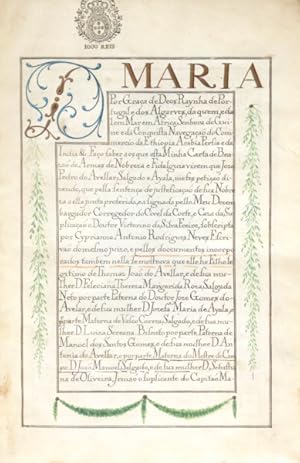 1000 REIS
D. MARIA
Por Graça de Deos Raynha de Por-
tugal e dos Algarves, da quem, e da
lem Mar em Africa, Senhora de Gui
ne e da Conquista Navegação do Com
mercio da Ethiopia Arabia Persia e da
India &c Faço saber a os que esta Minha Carta de Bra-
zão de Armas de Nobreza e Fidalguia virem que Joze
Pedro de Avellar Salgado e Ayala, me fez petição di-
zendo, que pella Sentença de justificação de sua Nobre
za a ella junta, proferida, e assignada pello Meu Dezem-
bargador Corregedor do Civel da Corte, e Caza da Su-
plicação o Doutor da Silva sobscripta
por Cypriano Antonio Rodrigues Neves Escri-
vão do mesmo juizo, e pellos documentos incorpo-
rados tambem nella Se mostrava que elle he Filho le-
gitimo de Thomas Joze de Avellar, e de sua mu-
lher D. Feleciana Thereza Margarida Roza, Salgada
Neto por parte Paterna do Doutor Joze Gomes do
Avelar, e de sua mulher D. Jozefa Maria de Ayala, e
por parte Materna de Correa Salgado, e de sua mu-
lher D. Luiza Bisneto por parte Paterna de
Manoel dos Santos Gomes, e de sua mulher D. An-
tonia do Avellar, e por parte Materna do Mestre de Cam-
po D. Joze Manoel Salgado, e de sua mulher D.
na de Oliveira, Irmao o suplicante do Capitão Ma-